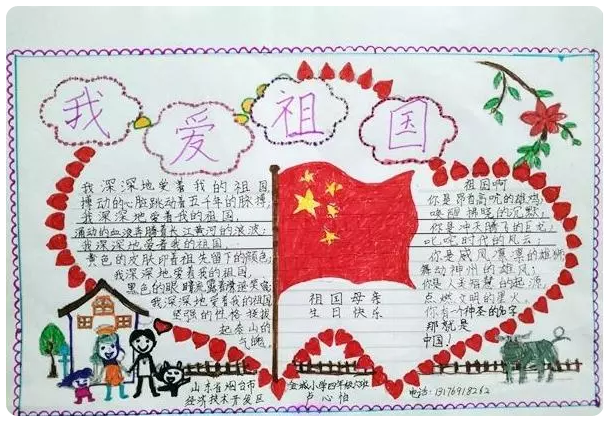 我爱祖国
我深深地爱着我的祖国
搏动的心脏跳动着五千年的脉搏
我深深地爱着我的祖国
涌动的血液奔腾着长江黄河的浪波
我深深地爱着我的祖国,
黄色的皮肤印着祖先留下的颜色;
我深深地爱着我的祖国,
黑色的眼睛流露着
我深深地爱着我的祖国
坚强的性格挺拔
起泰山的
气魄。
祖国母亲
生日快乐
祖国啊
你是昂首高吭的雄鸡
唤醒拂晓的沉默,
你是冲天腾飞的巨龙,
叱咤时代的风云;
你是威风凛凛的雄狮
舞动神州的雄风;
你是人类智慧的起源,
点燃文明的星火。
你有一个神圣的名字
那就是
中国!
山东省烟台市
经济技术开发区
金城小学四年级六班
卢心怡
电话:13176918262